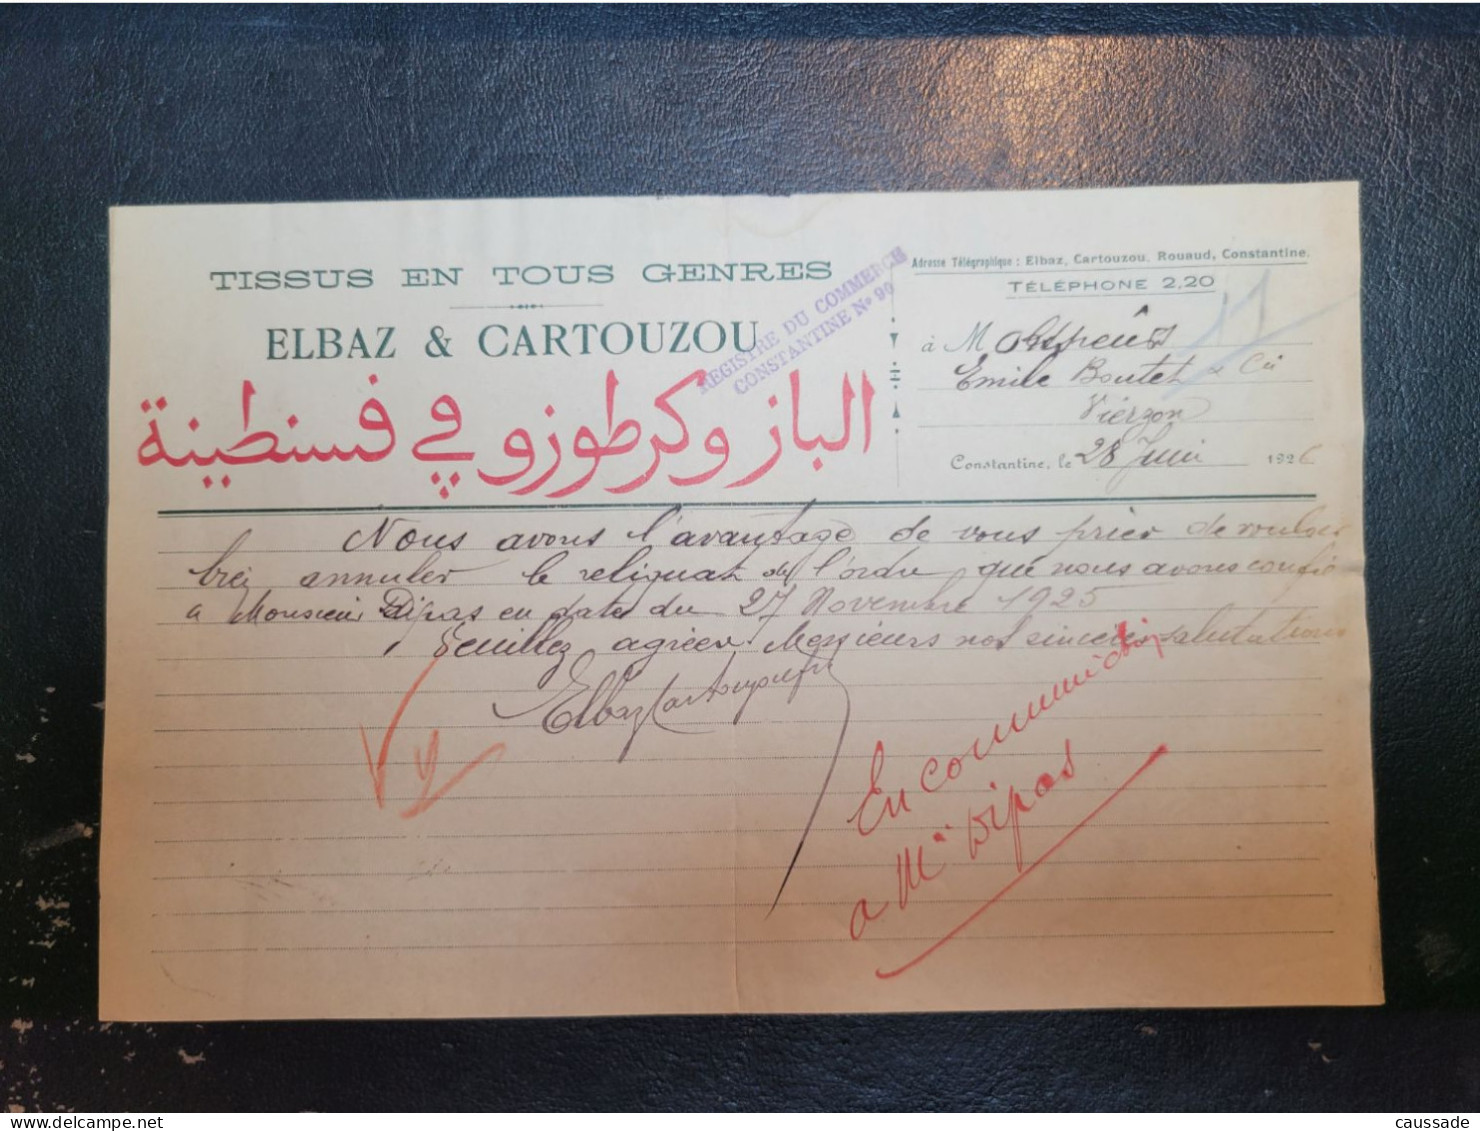 TISSUS EN TOUS GENRES
ELBAZ & CARTOUZOU
الباز وكرطوزو ڢي فسنطينة
REGISTRE DU COMMERCE
CONSTANTINE Nº 90
Adresse Télégraphique : Elbaz, Cartouzou, Rouaud, Constantine.
TÉLÉPHONE 2,20
à M
Emile Boutet & Cie
Vierzon
Constantine, le 28 Juin 1926
Nous avons l'avantage de vous prier de vouloir
annuler le reliquat de l'ordre que nous avons confié
a Monsieur Dipas en date du 27 Novembre 1925
Veuillez agréer Messieurs nos sincères salutations
Elbaz Cartouzou
En communication
a Mr Dipas
caussade